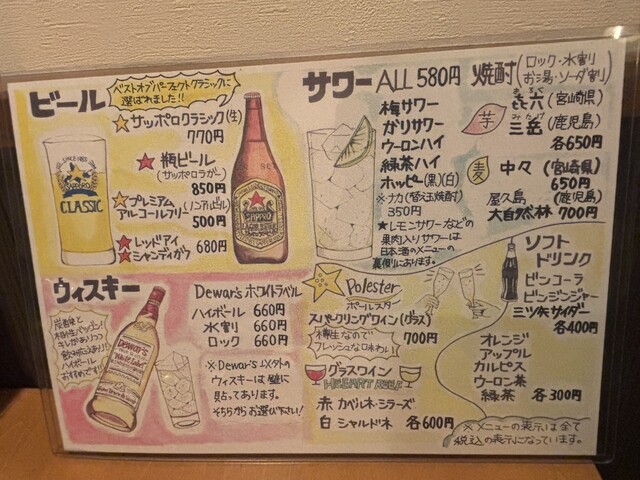 ビール
ベストオブパーフェクトクラシックに
選ばれました!!
サッポロクラシック(生)
770円
瓶ビール
(サッポロラガー)
850円
プレミアム
アルコールフリー(ノンアルビール)
500円
レッドアイ
シャンディガフ 680円
SAPPORO
CLASSIC
サワー ALL 580円
梅サワー
ガリサワー
ウーロンハイ
緑茶ハイ
ホッピー(黒)(白)
※ナカ(替え玉焼酎)
350円
★レモンサワーなどの
果肉入りサワーは
日本酒のメニューの
裏側にあります。
焼酎(ロック・水割り
お湯・ソーダ割り)
芋
㐂六(宮崎県)
みたけ
三岳(鹿児島)
各650円
麦
中々(宮崎県)
650円
屋久島(鹿児島)
大自然林 700円
ウィスキー
炭酸と
相性バッチリ!
キレがありつつ
飲み応えあり!!
ハイボール
おすすめです!!
DEWAR'S
White Label
Dewar's ホワイトラベル
ハイボール 660円
水割り 660円
ロック 660円
※Dewar's以外の
ウィスキーは壁に
貼ってあります。
そちらからお選び下さい!
Polester
ポールスター
スパークリングワイン(グラス)
樽生なので
フレッシュな口あわい!
700円
グラスワイン
赤 カベルネ・シラーズ
白 シャルドネ 各600円
ソフト
ドリンク
ビンコーラ
ビンジンジャー
三ツ矢サイダー
各400円
オレンジ
アップル
カルピス
ウーロン茶
緑茶 各300円
※メニューの表示は全て
税込の表示になっています。